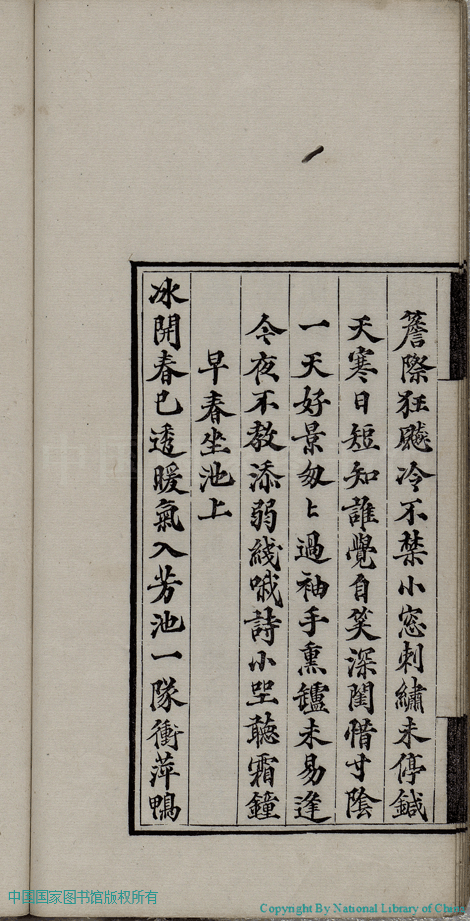 簷際狂飈冷不禁小窓刺繡未停鍼
天寒日短知誰覺自笑深閨惜寸陰
一天好景匆匕過袖手熏鑪未易逢
今夜不教添弱綫哦詩小坐聽霜鐘
早春坐池上
冰開春已透暖氣入芳池一隊衝萍鴨
中国国家图书馆版权所有
Copyright By National Library of China